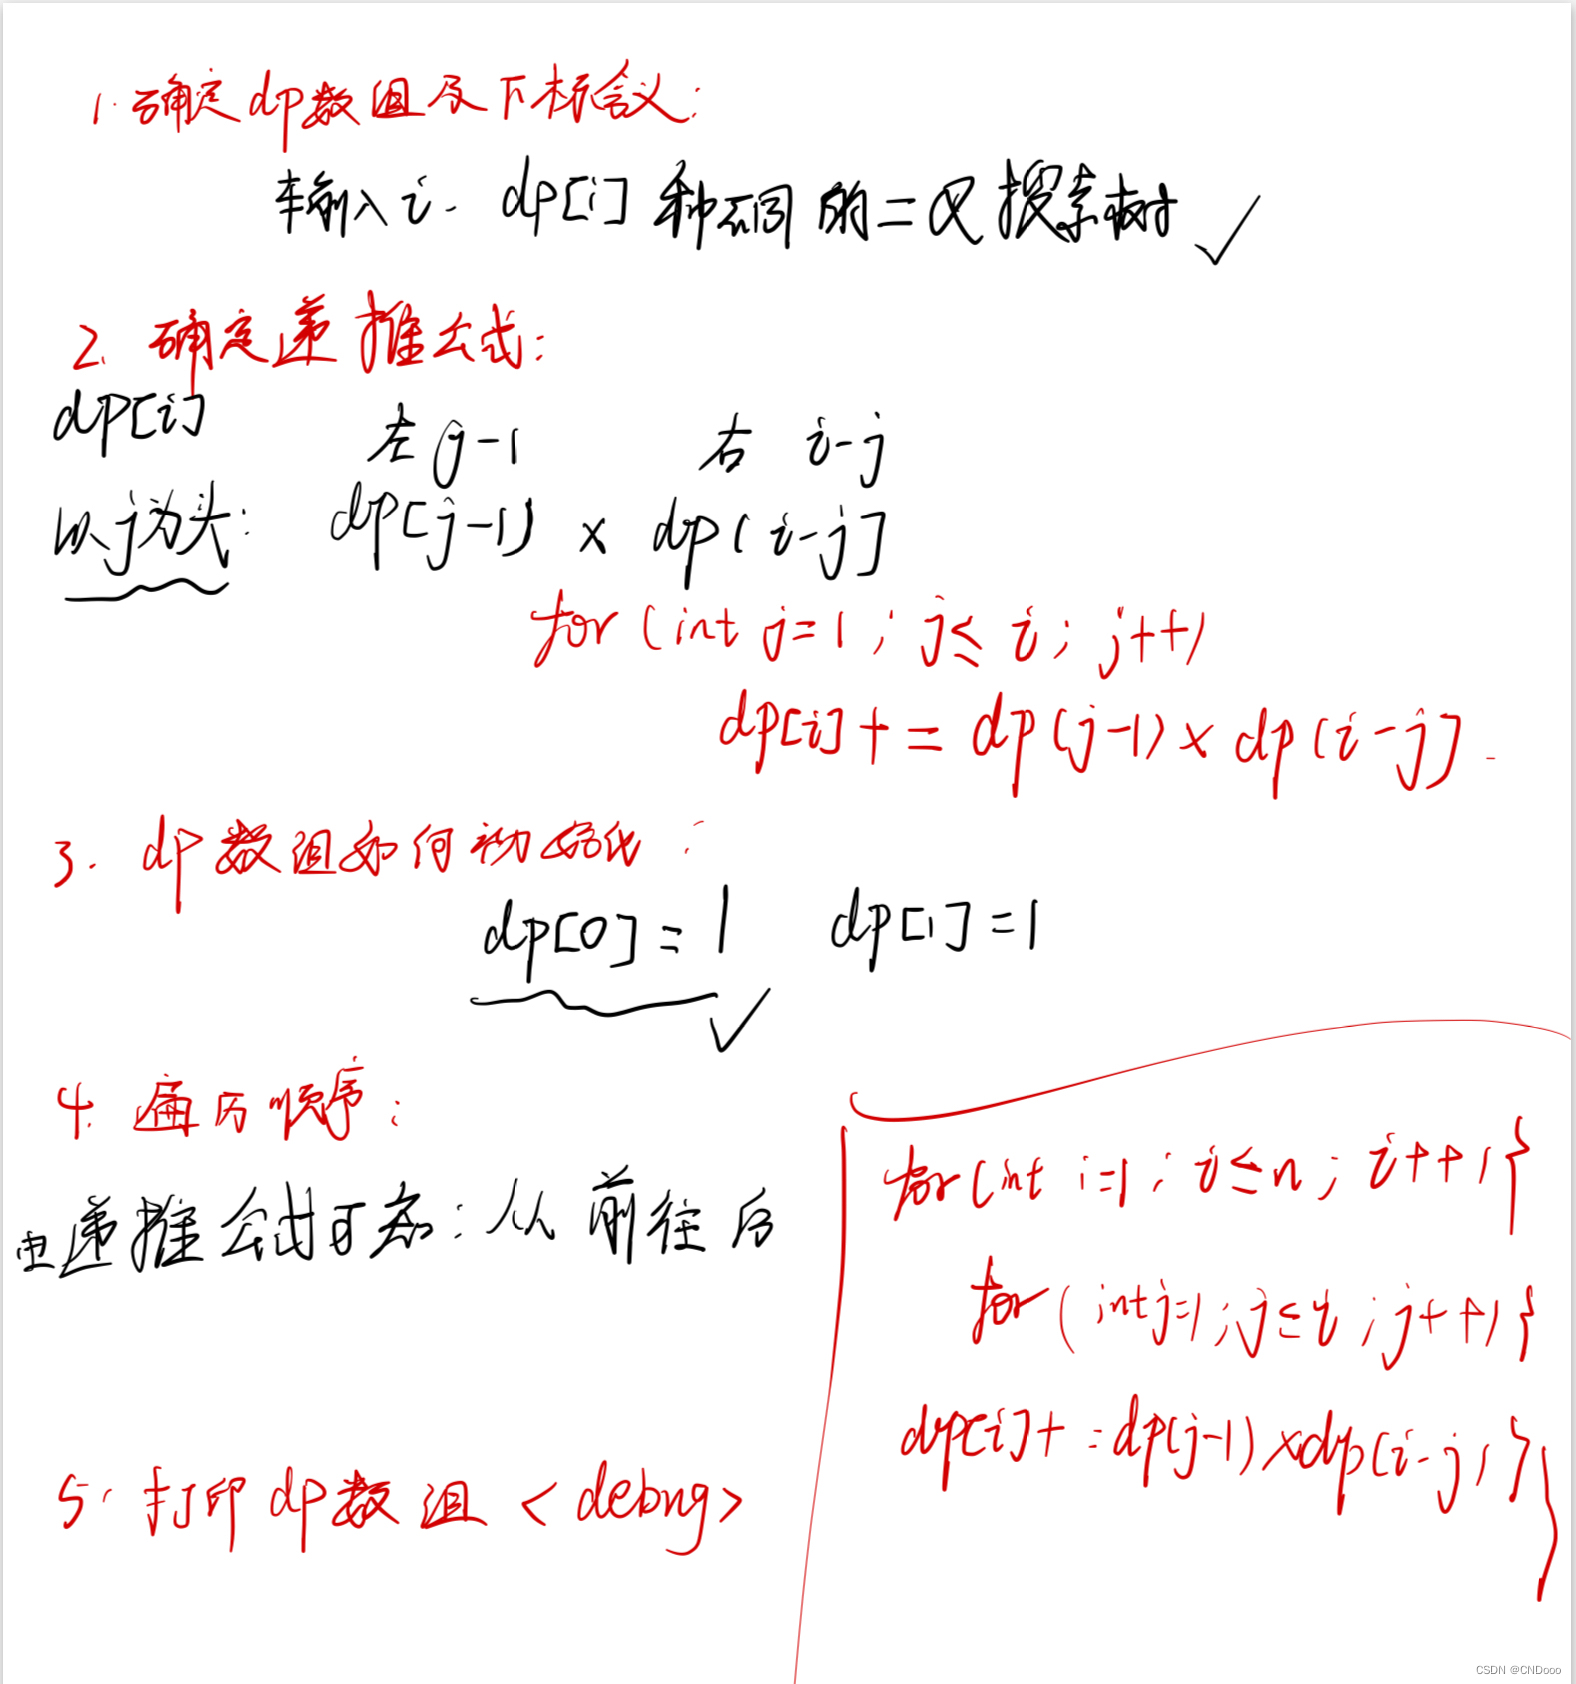 1. 确定dp数组及下标含义:
输入i. dp[i]种不同的二叉搜索树
2. 确定递推公式:
dp[i]
左 j-1 右 i-j
以j为头: dp[j-1) x dp(i-j]
for (int j=1; j≤i; j++)
dp[i]+=dp(j-1)x dp(i-j].
3. dp数组如何初始化:
dp[0]=1 dp[1]=1
4. 遍历顺序:
由递推公式可知:从前往后
for(int i=1; i≤n; i++){
for(int j=1; j≤i; j++){
dp[i]+=dp(j-1)xdp(i-j)}
}
5. 打印dp数组<debug>
CSDN @CNDooo